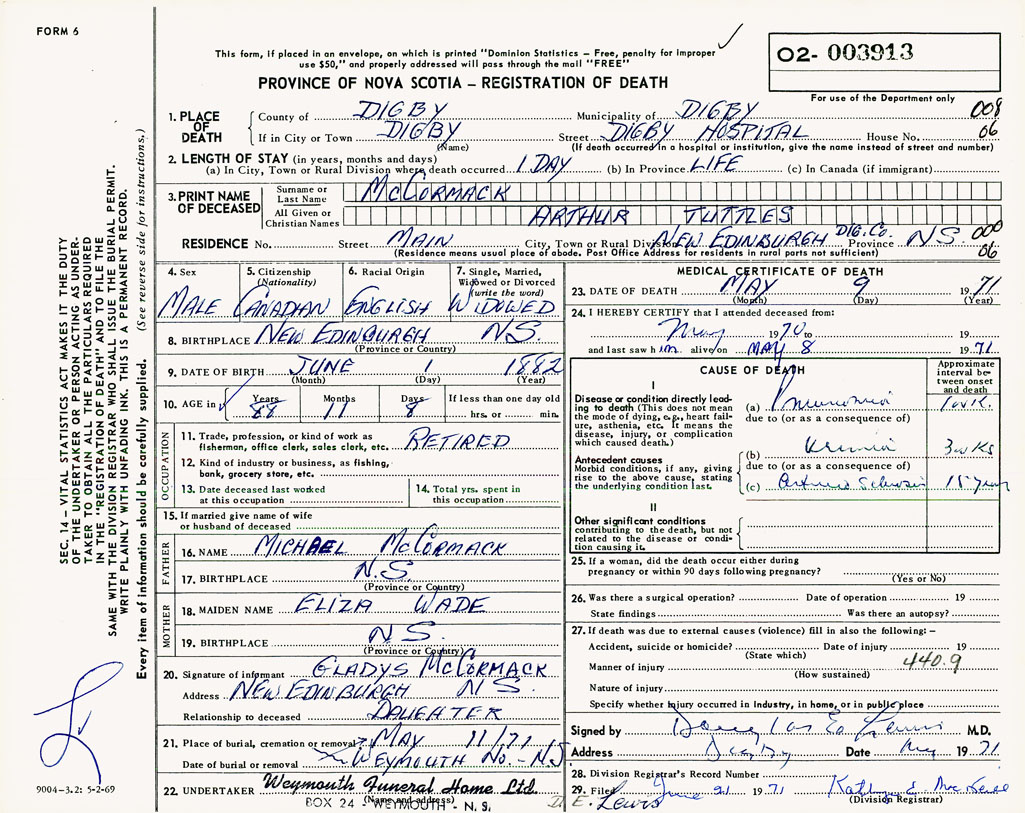 FORM 6
This form, if placed in an envelope, on which is printed "Dominion Statistics – Free, penalty for improper
use $50," and properly addressed will pass through the mail "FREE"
02- 003913
PROVINCE OF NOVA SCOTIA – REGISTRATION OF DEATH
For use of the Department only
1. PLACE OF DEATH County of DIGBY Municipality of DIGBY 008
If in City or Town DIGBY Street DIGBY HOSPITAL House No. 06
(Name) (If death occurred in a hospital or institution, give the name instead of street and number)
2. LENGTH OF STAY (in years, months and days)
(a) In City, Town or Rural Division where death occurred 1 DAY (b) In Province LIFE (c) In Canada (if immigrant)
3. PRINT NAME OF DECEASED Surname or Last Name McCORMACK
All Given or Christian Names ARTHUR TUTTLES
RESIDENCE No. Street MAIN City, Town or Rural Division NEW EDINBURGH DIG. Co. Province N.S. 000
(Residence means usual place of abode. Post Office Address for residents in rural parts not sufficient) 06
4. Sex 5. Citizenship (Nationality) 6. Racial Origin 7. Single, Married, Widowed or Divorced (write the word)
MALE CANADIAN ENGLISH WIDOWED
8. BIRTHPLACE NEW EDINBURGH N.S.
(Province or Country)
9. DATE OF BIRTH JUNE 1 1882
(Month) (Day) (Year)
10. AGE in Years Months Days If less than one day old
88 11 8 hrs. or min.
OCCUPATION
11. Trade, profession or kind of work as fisherman, office clerk, sales clerk, etc. RETIRED
12. Kind of industry or business, as fishing, bank, grocery store, etc.
13. Date deceased last worked at this occupation 14. Total yrs. spent in this occupation
15. If married give name of wife or husband of deceased
FATHER
16. NAME MICHAEL McCORMACK
17. BIRTHPLACE N.S.
(Province or Country)
MOTHER
18. MAIDEN NAME ELIZA WADE
19. BIRTHPLACE N.S.
(Province or Country)
20. Signature of informant GLADYS McCORMACK
Address NEW EDINBURGH N S.
Relationship to deceased DAUGHTER
21. Place of burial, cremation or removal MAY 11/71
Date of burial or removal WEYMOUTH No. - NS
22. UNDERTAKER Weymouth Funeral Home Ltd.
(Name and address)
BOX 24 - WEYMOUTH - N. S.
MEDICAL CERTIFICATE OF DEATH
23. DATE OF DEATH MAY 9 1971
(Month) (Day) (Year)
24. I HEREBY CERTIFY that I attended deceased from:
May 1970 to 19
and last saw him alive on MAY 8 1971
CAUSE OF DEATH Approximate interval between onset and death
I
Disease or condition directly leading to death (This does not mean the mode of dying, e.g., heart failure, asthenia, etc. It means the disease, injury, or complication which caused death.)
(a) Pneumonia 1 wk.
due to (or as a consequence of)
Antecedent causes
Morbid conditions, if any, giving rise to the above cause, stating the underlying condition last.
(b) Uremia 3 wks
due to (or as a consequence of)
(c) 15 years
II
Other significant conditions
contributing to the death, but not related to the disease or condition causing it.
25. If a woman, did the death occur either during
pregnancy or within 90 days following pregnancy?
(Yes or No)
26. Was there a surgical operation? Date of operation 19
State findings Was there an autopsy?
27. If death was due to external causes (violence) fill in also the following: –
Accident, suicide or homicide? Date of injury 19
(State which)
Manner of injury 440.9
(How sustained)
Nature of injury
Specify whether injury occurred in industry, in home, or in public place
Signed by Douglas E Lewis M.D.
Address Digby Date May 1971
28. Division Registrar's Record Number
29. Filed June 21 1971
(Division Registrar)
E. Lewis
SEC. 14 – VITAL STATISTICS ACT MAKES IT THE DUTY
OF THE UNDERTAKER OR PERSON ACTING AS UNDER-
TAKER TO OBTAIN ALL THE PARTICULARS REQUIRED
IN THE "REGISTRATION OF DEATH" AND TO FILE THE
SAME WITH THE DIVISION REGISTRAR WHO SHALL ISSUE THE BURIAL PERMIT.
WRITE PLAINLY WITH UNFADING INK. THIS IS A PERMANENT RECORD.
Every item of information should be carefully supplied. (See reverse side for instructions.)
9004-3.2: 5-2-69